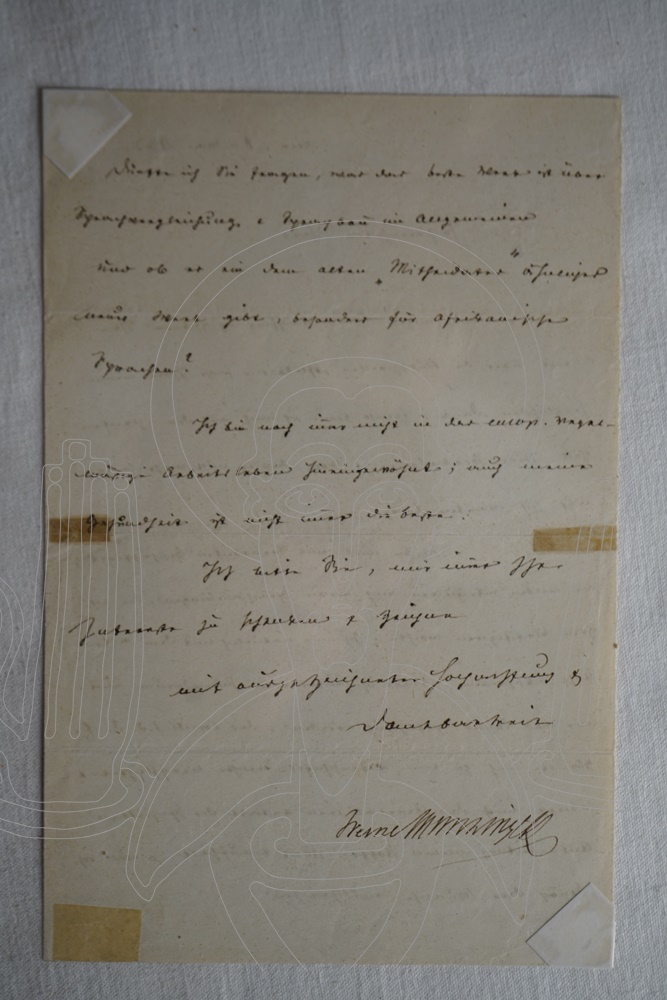 Dürfte ich Sie fragen, was das beste Werk ist über
Sprachvergleichung & Sprachbau im Allgemeinen
und ob es ein dem alten „Mithridates" ähnliches
neues Werk gibt, besonders für afrikanische
Sprachen?
Ich bin noch immer nicht in das europ. regel-
mässige Arbeitsleben hineingewöhnt; auch meine
Gesundheit ist nicht immer die beste.
Ich bitte Sie, mir immer Ihr
Interesse zu schenken & zeichne
mit ausgezeichneter Hochachtung &
Dankbarkeit
Werner Munzinger